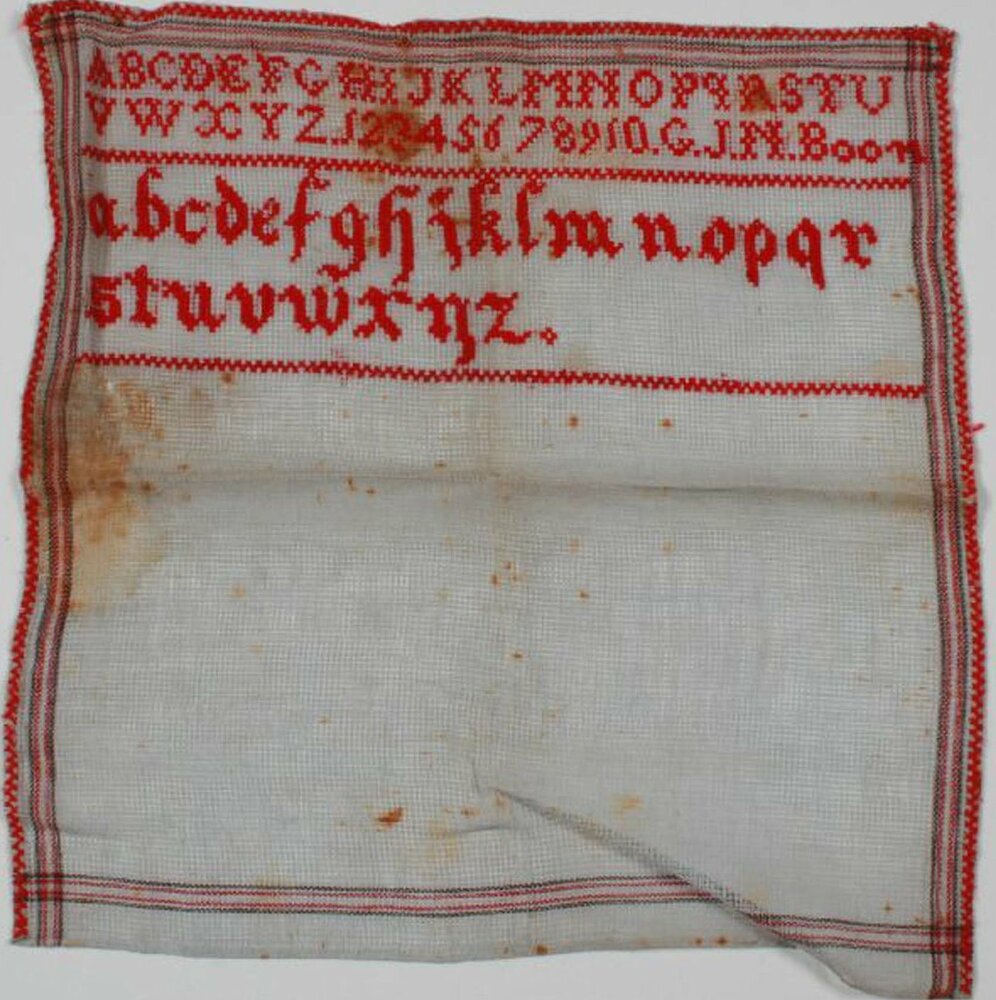 ABCDEFGHIJKLMNOPQRSTU
VWXYZ.12345678910.G.J.N.Boon
abcdefghijklmnopqr
stuvwxyz.